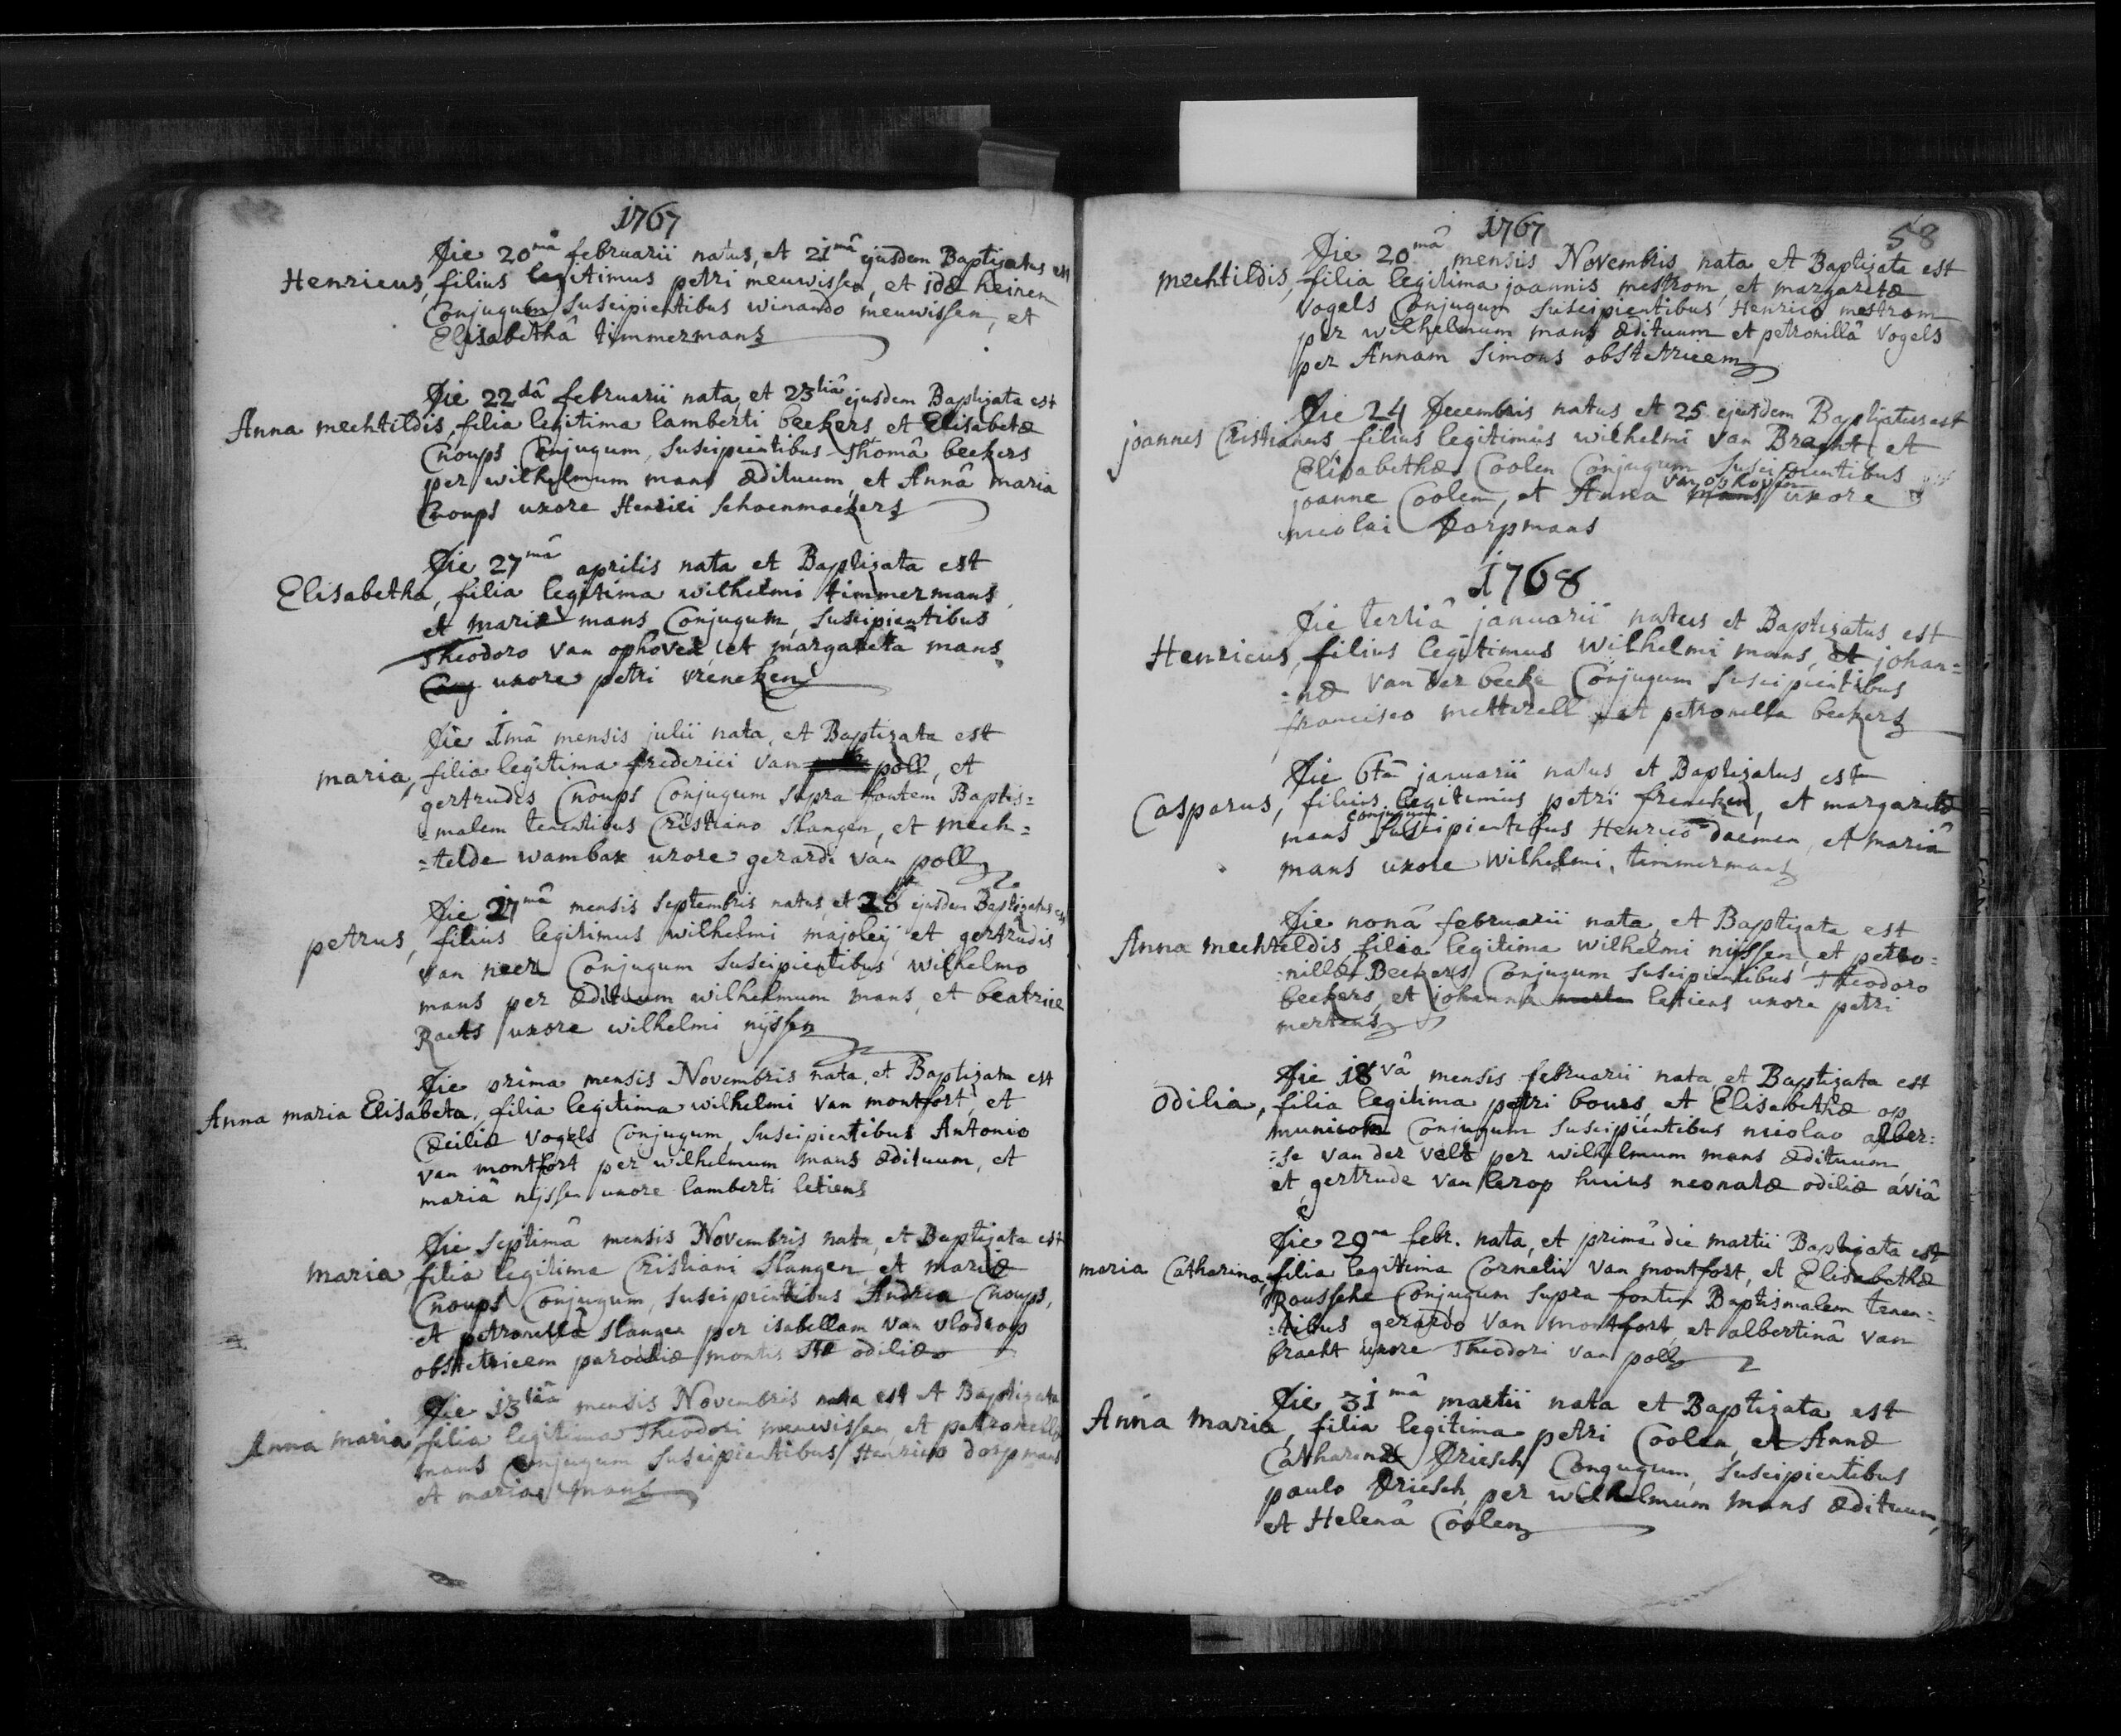 1767
Die 20mâ februarii natus, et 21mâ ejusdem Baptizatus est
Henricus, filius legitimus petri meuwissen, et idæ heinen
Conjugum suscipientibus winando meuwissen, et
Elisabethâ timmermans
Die 22dâ februarii nata et 23tiâ ejusdem Baptizata est
Anna mechtildis, filia legitima lamberti beekers et Elisabetæ
Cnoups Conjugum, suscipientibus Thomâ beekers
per wilhelmum mans ædituum, et Annâ maria
Cnoups uxore Henrici schoenmaekers
Die 27mâ aprilis nata et Baptizata est
Elisabetha, filia legitima wilhelmi timmermans
et mariæ mans Conjugum, suscipientibus
Theodoro van ophoven et margaretâ mans
uxore petri vreneken
Die 1mâ mensis julii nata, et Baptizata est
maria, filia legitima frederici van poll, et
gertrudis Cnoups Conjugum supra fontem Baptis=
=malem tenentibus Cristiano Slangen, et mech=
=telde wambax uxore gerardi van poll
Die 27mâ mensis septembris natus, et 28 ejusdem Baptizatus est
petrus, filius legitimus wilhelmi majoleij et gertrudis
van neer Conjugum suscipientibus wilhelmo
mans per ædituum wilhelmum mans, et beatrice
Raets uxore wilhelmi nijssen
Die prima mensis Novembris nata, et Baptizata est
Anna maria Elisabeta, filia legitima wilhelmi van montfort, et
Cæciliæ vogels Conjugum, suscipientibus Antonio
van montfort per wilhelmum mans ædituum, et
mariâ nijssen uxore lamberti letiens
Die septimâ mensis Novembris nata, et Baptizata est
maria, filia legitima Cristiani Slangen, et mariæ
Cnoups Conjugum, suscipientibus Andrea Cnoups,
et petronillâ Slangen per isabellam van vlodrop
obstetricem parociæ montis Stæ odiliæ
Die 13tiâ mensis Novembris nata est et Baptizata
Anna maria, filia legitima Theodori meuwissen et petronellæ
mans Conjugum suscipientibus Henrico dorpmans
et maria mans
1767
58
Die 20mâ mensis Novembris nata et Baptizata est
mechtildis, filia legitima joannis mestrom, et margaretæ
vogels Conjugum suscipientibus Henrico mestrom
per wilhelmum mans ædituum et petronillâ vogels
per Annam Simons obstetricem
Die 24 Decembris natus et 25 ejusdem Baptizatus est
joannes Cristianus filius legitimus wilhelmi van Bracht, et
Elisabethæ Coolen Conjugum suscipientibus
joanne Coolen, et Anna van ophoven mans uxore
nicolai Dorpmans
1768
Die tertiâ januarii natus et Baptizatus est
Henricus, filius legitimus wilhelmi mans, et johan=
=næ van der beeke Conjugum suscipientibus
francisco metterell et petronella beekers
Die 6tâ januarii natus et Baptizatus est
Casparus, filius legitimus petri freneken, et margaritæ
mans conjugum suscipientibus Henrico daemen, et mariâ
mans uxore wilhelmi timmermans
Die nonâ februarii nata, et Baptizata est
Anna mechteldis, filia legitima wilhelmi nijssen, et petro=
=nillæ Beekers Conjugum suscipientibus Theodoro
beekers, et johanna letiens uxore petri
mertens
Die 18vâ mensis februarii nata et Baptizata est
Odilia, filia legitima petri bours, et Elisabethæ op
municom Conjugum suscipientibus nicolao alber=
=se van der velt per wilhelmum mans ædituum,
et gertrude van lerop huius neonatæ odiliæ aviâ
Die 29na febr. nata, et primâ die martii Baptizata est
maria Catharina, filia legitima Cornelii van montfort, et Elisabethæ
Roussche Conjugum supra fontem Baptismalem tenen=
=tibus gerardo van montfort, et albertinâ van
bracht uxore Theodori van poll
Die 31mâ martii nata et Baptizata est
Anna Maria, filia legitima petri Coolen, et Annæ
Catharinæ Driesch Congugum, suscipientibus
paulo Driesch per wilhelmum mans ædituum,
et Helenâ Coolen